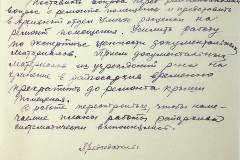 Поставить вопрос перед
вопрос о ремонте помещения и предоставить
в архивный отдел смету расходов на
ремонт помещения. Усилить работу
по экспертизе ценности документальных
материалов. Прием документальных
материалов из учреждений р-на на
хранение в райгосархив временно
прекратить до ремонта крыши
помещения.
В работе перестроиться, чтобы наме-
чаемые планы работы райархива
систематически выполнялись.